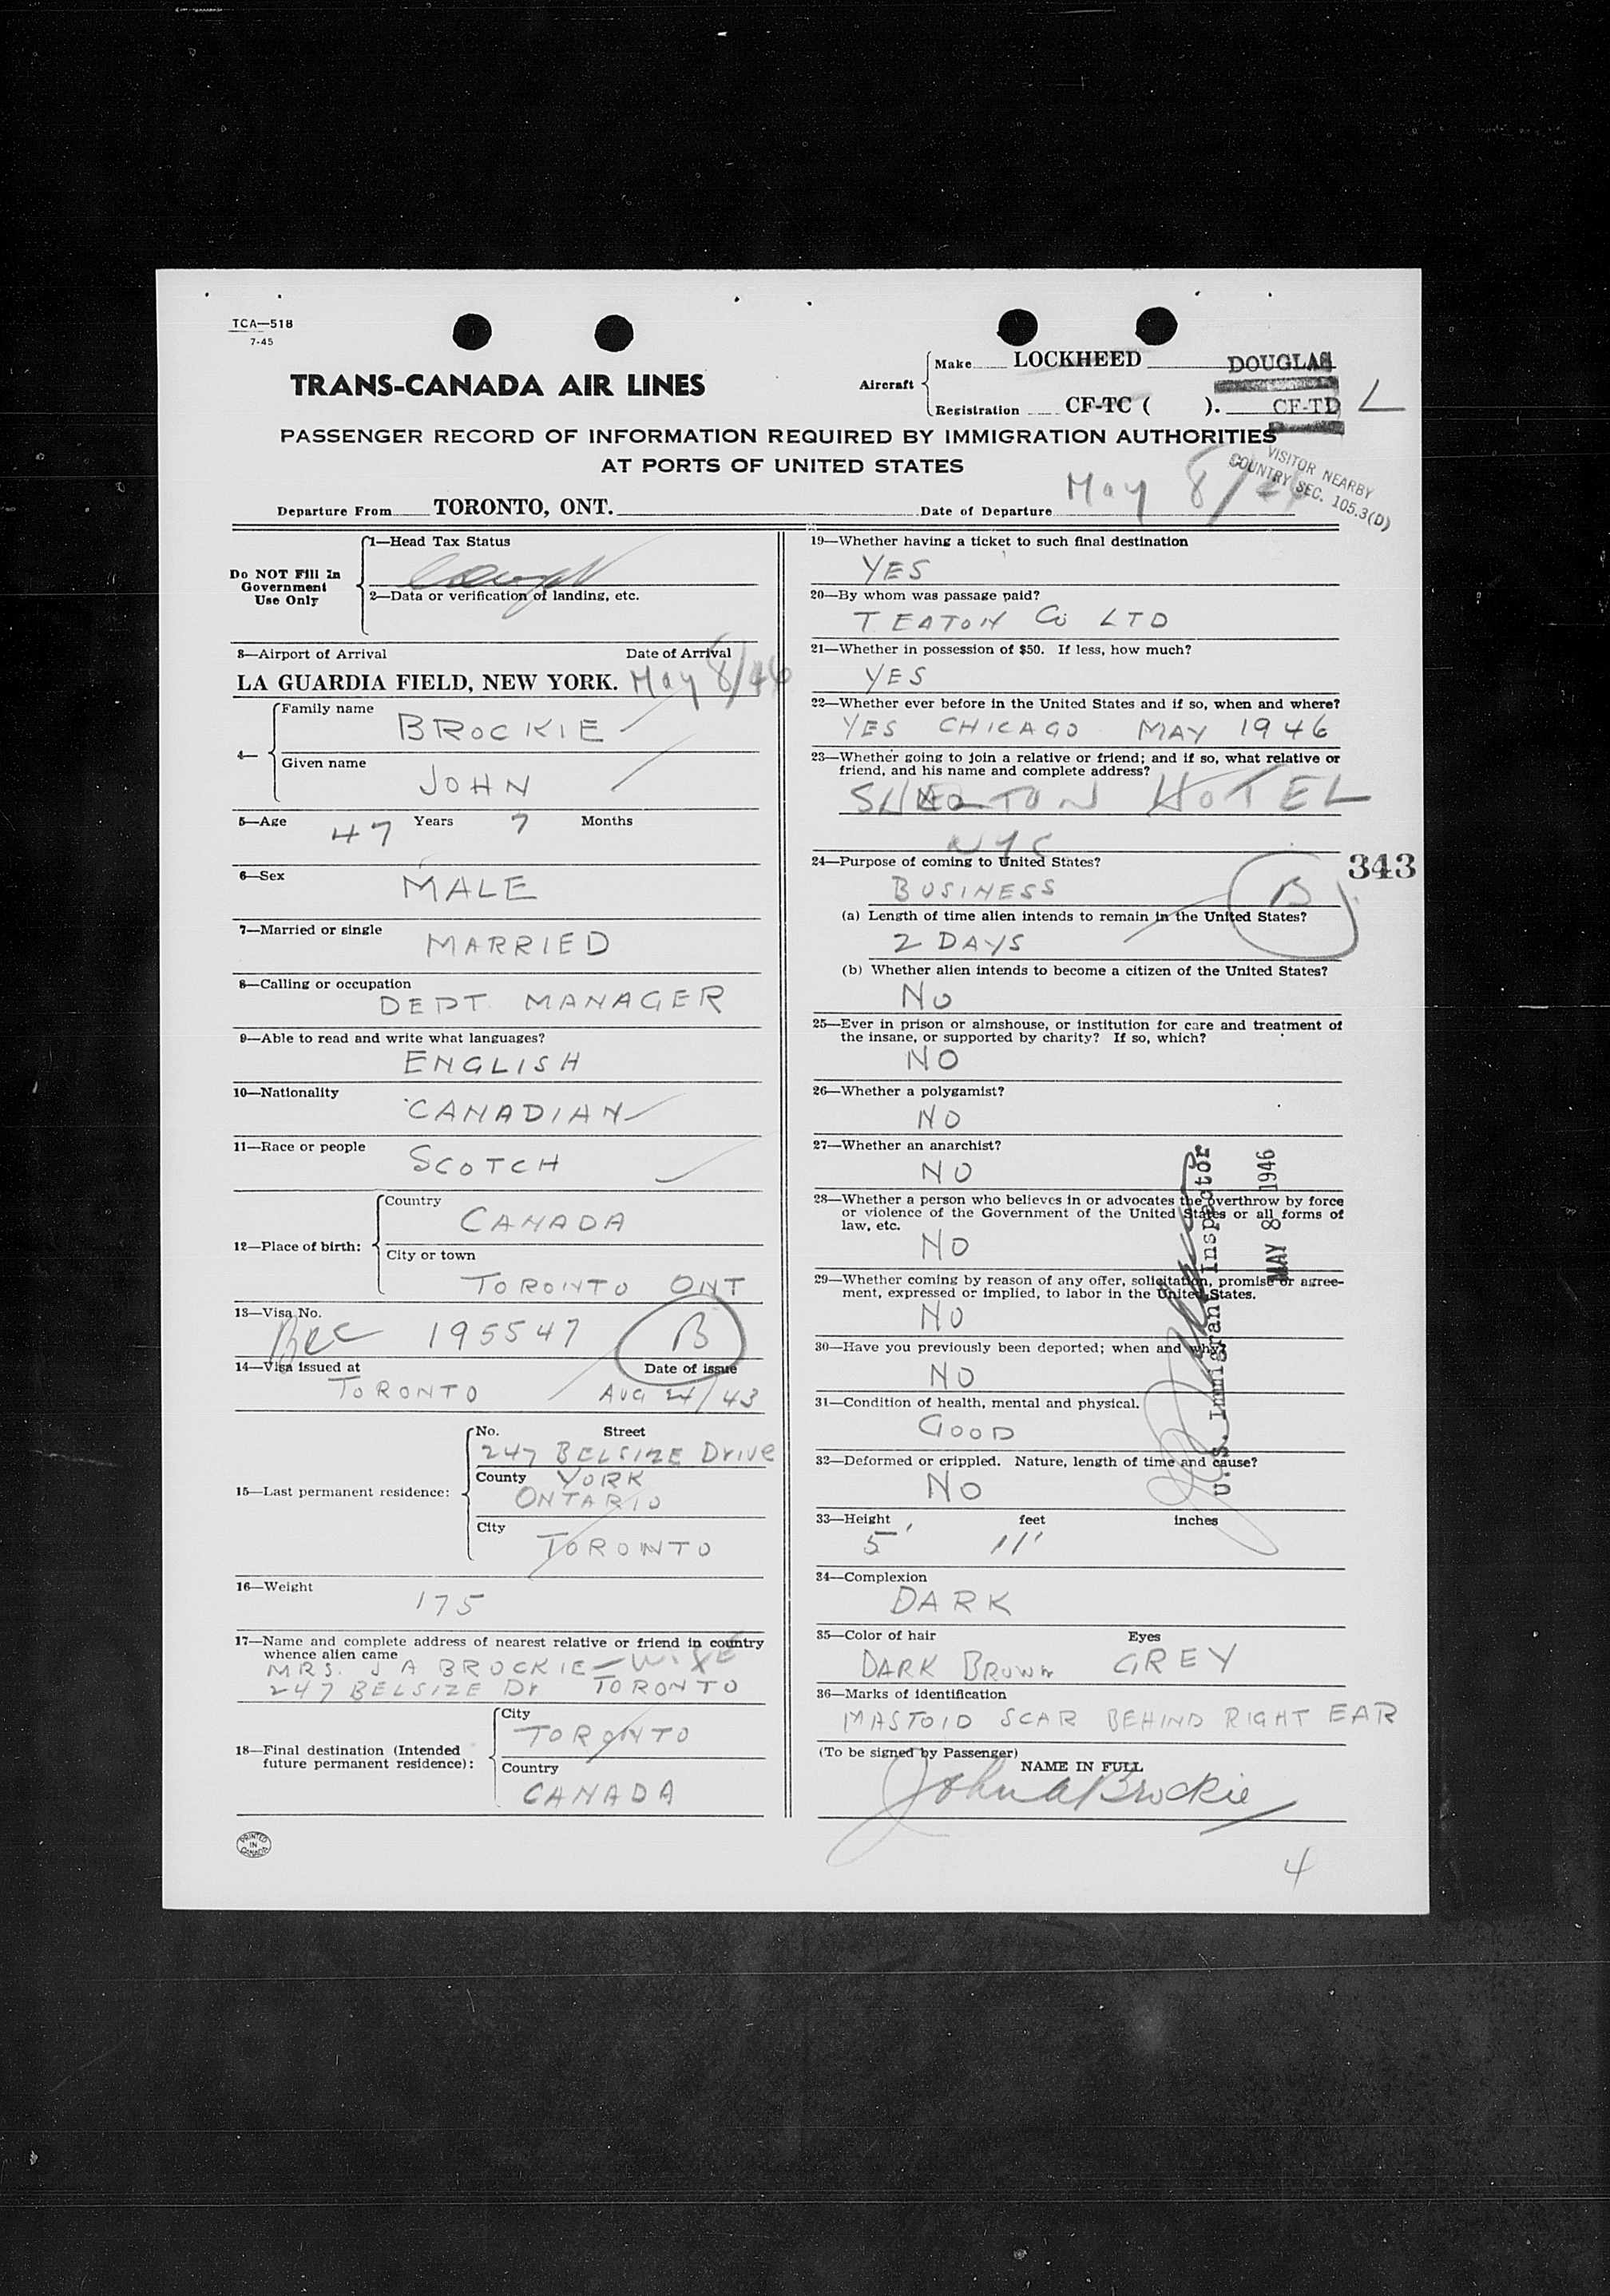 TCA—518
7-45
TRANS-CANADA AIR LINES
Aircraft
Make LOCKHEED DOUGLAS
Registration CF-TC ( ). CF-TD L
PASSENGER RECORD OF INFORMATION REQUIRED BY IMMIGRATION AUTHORITIES
AT PORTS OF UNITED STATES
VISITOR NEARBY
COUNTRY SEC. 105.3(D)
Departure From TORONTO, ONT. Date of Departure May 8/
Do NOT Fill In
Government
Use Only
1—Head Tax Status
2—Data or verification of landing, etc.
3—Airport of Arrival Date of Arrival
LA GUARDIA FIELD, NEW YORK. May 8/46
4—
Family name
BROCKIE
Given name
JOHN
5—Age 47 Years 7 Months
6—Sex
MALE
7—Married or single
MARRIED
8—Calling or occupation
DEPT. MANAGER
9—Able to read and write what languages?
ENGLISH
10—Nationality
CANADIAN
11—Race or people
SCOTCH
12—Place of birth:
Country
CANADA
City or town
TORONTO ONT
13—Visa No.
BCC 195547 B
14—Visa issued at Date of issue
TORONTO AUG 24/43
15—Last permanent residence:
No. Street
247 BELSIZE Drive
County YORK
ONTARIO
City
TORONTO
16—Weight
175
17—Name and complete address of nearest relative or friend in country
whence alien came
MRS. J A BROCKIE — WIFE
247 BELSIZE Dr TORONTO
18—Final destination (Intended
future permanent residence):
City
TORONTO
Country
CANADA
PRINTED
IN
CANADA
19—Whether having a ticket to such final destination
YES
20—By whom was passage paid?
T. EATON Co LTD
21—Whether in possession of $50. If less, how much?
YES
22—Whether ever before in the United States and if so, when and where?
YES CHICAGO MAY 1946
23—Whether going to join a relative or friend; and if so, what relative or
friend, and his name and complete address?
SHELTON HOTEL
NYC
24—Purpose of coming to United States?
BUSINESS B
343
(a) Length of time alien intends to remain in the United States?
2 DAYS
(b) Whether alien intends to become a citizen of the United States?
No
25—Ever in prison or almshouse, or institution for care and treatment of
the insane, or supported by charity? If so, which?
NO
26—Whether a polygamist?
NO
27—Whether an anarchist?
NO
28—Whether a person who believes in or advocates the overthrow by force
or violence of the Government of the United States or all forms of
law, etc.
NO
29—Whether coming by reason of any offer, solicitation, promise or agree-
ment, expressed or implied, to labor in the United States.
NO
30—Have you previously been deported; when and why?
NO
31—Condition of health, mental and physical.
GOOD
32—Deformed or crippled. Nature, length of time and cause?
NO
U.S. Immigrant Inspector
MAY 8 1946
33—Height feet inches
5' 11"
34—Complexion
DARK
35—Color of hair Eyes
DARK BROWN GREY
36—Marks of identification
MASTOID SCAR BEHIND RIGHT EAR
(To be signed by Passenger)
NAME IN FULL
John A Brockie
4